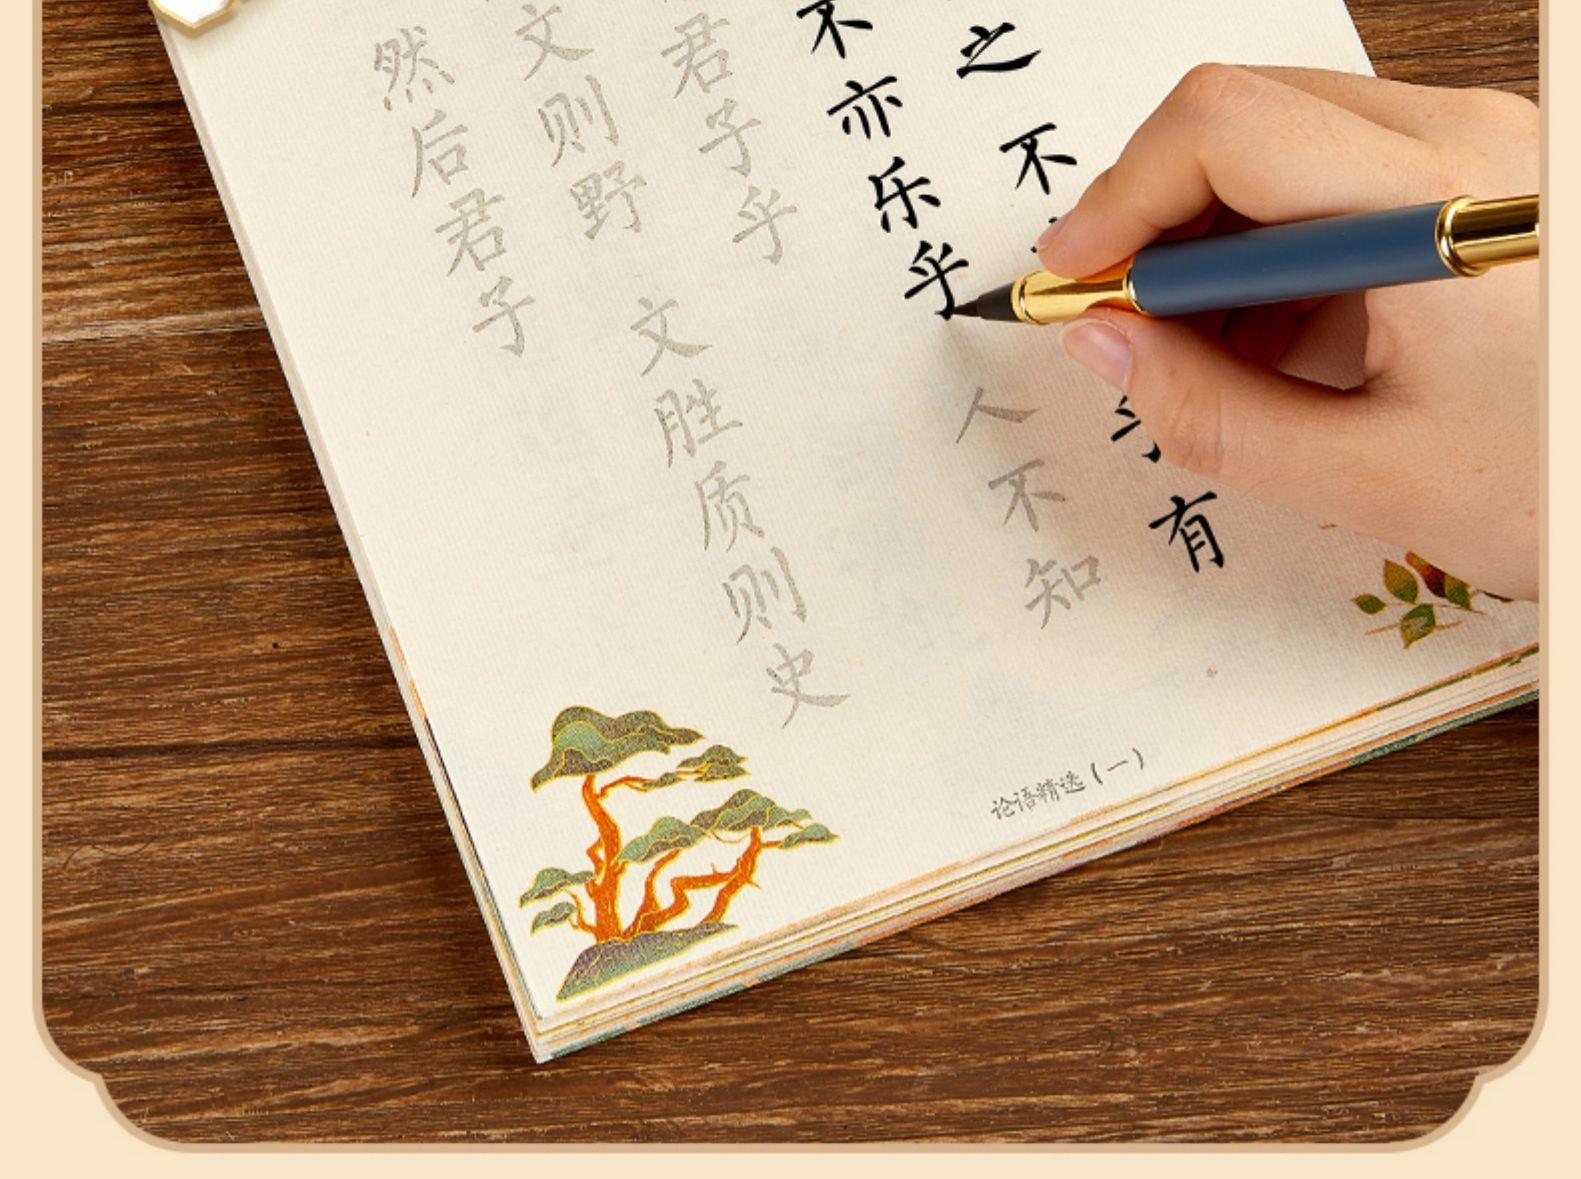 之 不 有
不亦乐乎 人不知
君子乎
文则野 文胜质则史
然后君子
论语精选（一）